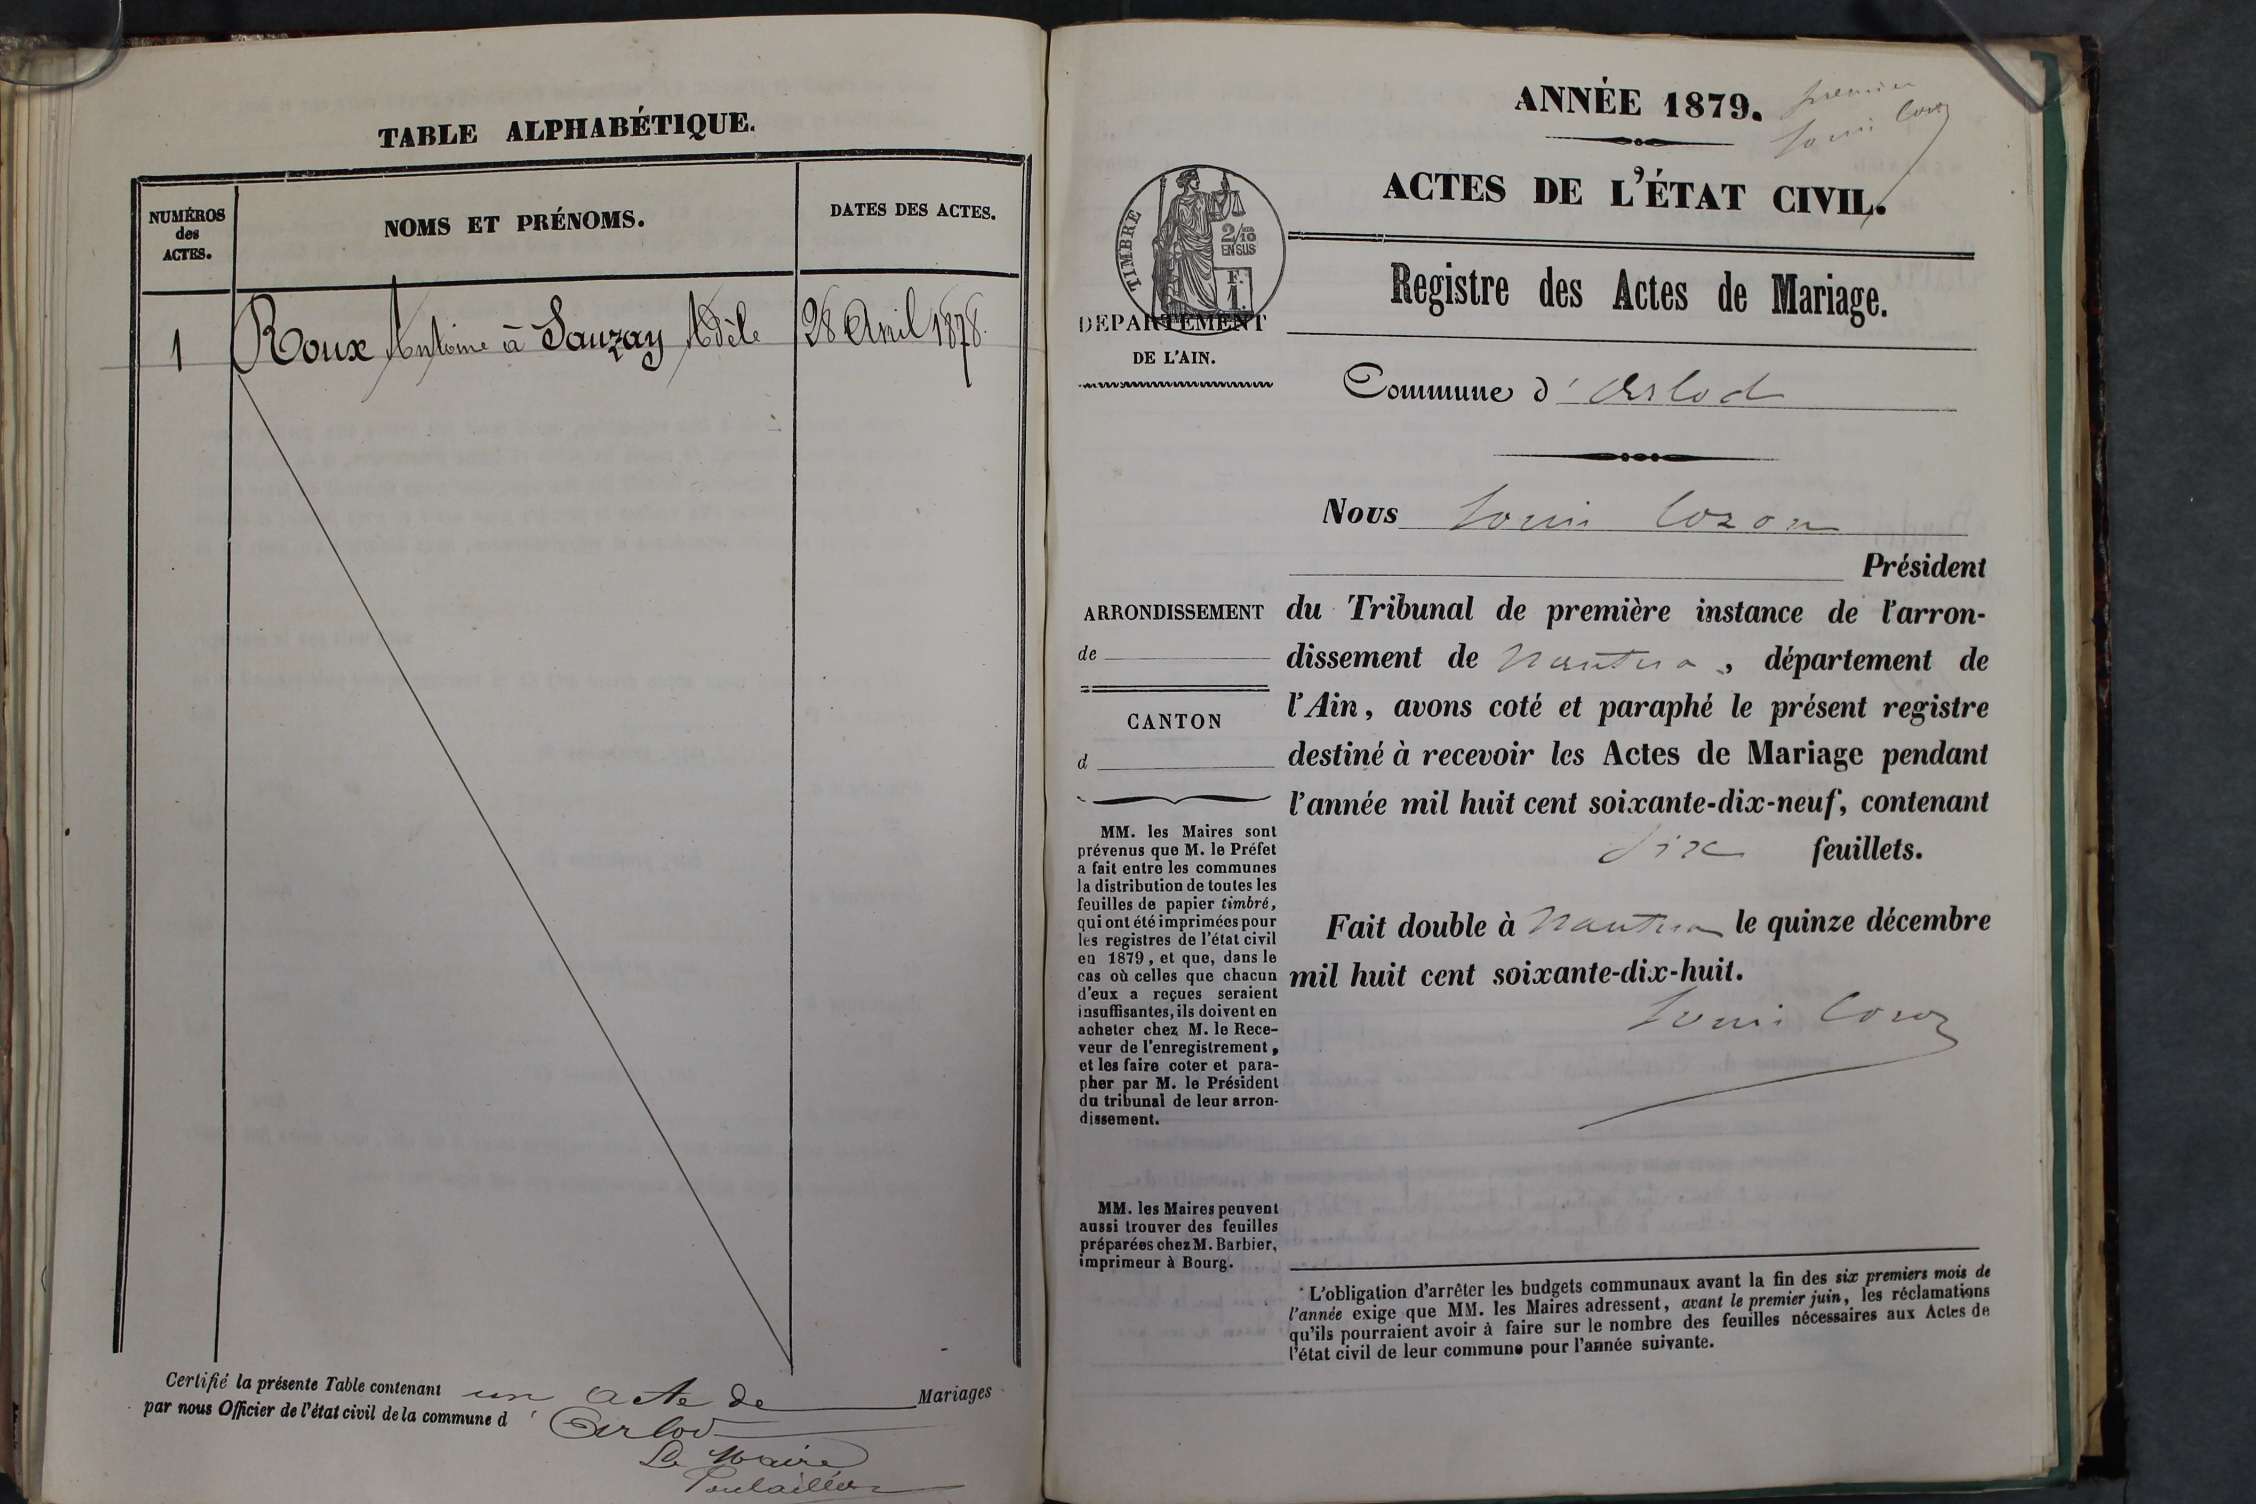 TABLE ALPHABÉTIQUE.
NUMÉROS
des
ACTES.
NOMS ET PRÉNOMS.
DATES DES ACTES.
1 Roux Antoine à Sauzay Adèle 28 Avril 1878.
Certifié la présente Table contenant un acte de Mariages
par nous Officier de l'état civil de la commune d'Arlod
Le Maire
ANNÉE 1879.
premier
Louis Coron
ACTES DE L'ÉTAT CIVIL.
TIMBRE
2/10
EN SUS
F.
1.
DEPARTEMENT
DE L'AIN.
Registre des Actes de Mariage.
Commune d'Arlod
Nous Louis Coron
Président
du Tribunal de première instance de l'arron-
dissement de Nantua, département de
l'Ain, avons coté et paraphé le présent registre
destiné à recevoir les Actes de Mariage pendant
l'année mil huit cent soixante-dix-neuf, contenant
dix feuillets.
Fait double à Nantua le quinze décembre
mil huit cent soixante-dix-huit.
Louis Coron
ARRONDISSEMENT
de
CANTON
d
MM. les Maires sont
prévenus que M. le Préfet
a fait entre les communes
la distribution de toutes les
feuilles de papier timbré,
qui ont été imprimées pour
les registres de l'état civil
en 1879, et que, dans le
cas où celles que chacun
d'eux a reçues seraient
insuffisantes, ils doivent en
acheter chez M. le Rece-
veur de l'enregistrement,
et les faire coter et para-
pher par M. le Président
du tribunal de leur arron-
dissement.
MM. les Maires peuvent
aussi trouver des feuilles
préparées chez M. Barbier,
imprimeur à Bourg.
L'obligation d'arrêter les budgets communaux avant la fin des six premiers mois de
l'année exige que MM. les Maires adressent, avant le premier juin, les réclamations
qu'ils pourraient avoir à faire sur le nombre des feuilles nécessaires aux Actes de
l'état civil de leur commune pour l'année suivante.